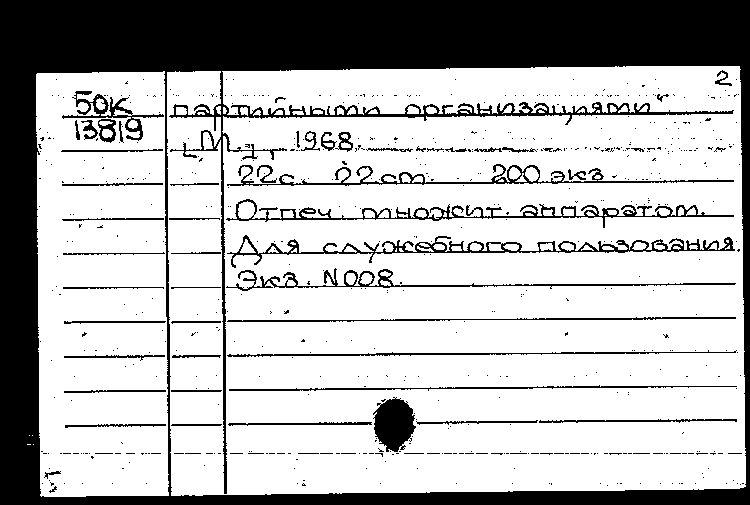 2
50К партийными организациями"
13819 [М.], 1968.
22с. 22 cm. 200 экз.
Отпеч. множит. аппаратом.
Для служебного пользования.
Экз. N008.